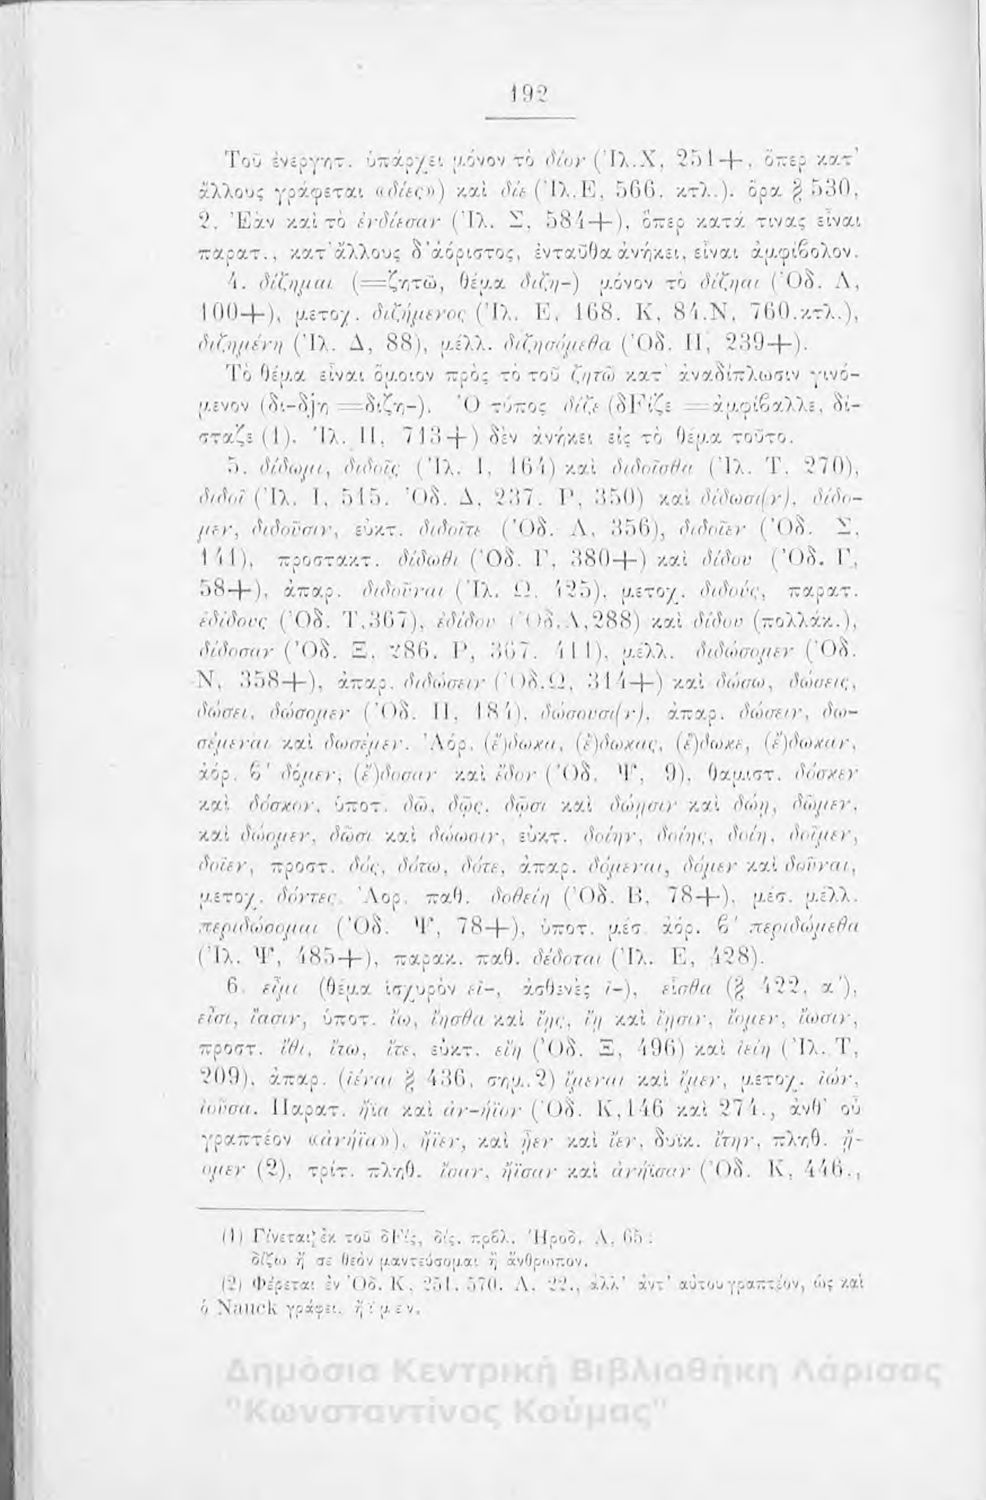 192
Τοῦ ἐνεργητ. ὑπάρχει μόνον τὸ δίον (Ἰλ.Χ, 251+, ὅπερ κατ'
ἄλλους γράφεται «δίες») καὶ δίε (Ἰλ.Ε, 566. κτλ.). ὅρα § 530,
2. Ἐὰν καὶ τὸ ἐνδίεσαν (Ἰλ. Σ, 584+), ὅπερ κατά τινας εἶναι
παρατ., κατ' ἄλλους δ' ἀόριστος, ἐνταῦθα ἀνήκει, εἶναι ἀμφίβολον.
4. δίζημαι (=ζητῶ, θέμα διζη-) μόνον τὸ δίζηαι (Ὀδ. Λ,
100+), μετοχ. διζήμενος (Ἰλ. Ε, 168. Κ, 84.Ν, 760.κτλ.),
διζημένη (Ἰλ. Δ, 88), μέλλ. διζησόμεθα (Ὀδ. Π, 239+).
Τὸ θέμα εἶναι ὅμοιον πρὸς τὸ τοῦ ζητῶ κατ' ἀναδίπλωσιν γινό-
μενον (δι-δjη =διζη-). Ὁ τύπος δίζε (δFίζε =ἀμφίβαλλε, δί-
σταζε (1). Ἰλ. Π, 713+) δὲν ἀνήκει εἰς τὸ θέμα τοῦτο.
5. δίδωμι, διδοῖς (Ἰλ. Ι, 164) καὶ διδοῖσθα (Ἰλ. Τ, 270),
διδοῖ (Ἰλ. Ι, 515. Ὀδ. Δ, 237. Ρ, 350) καὶ δίδωσι(ν), δίδο-
μεν, διδοῦσιν, εὐκτ. διδοῖτε (Ὀδ. Λ, 356), διδοῖεν (Ὀδ. Σ,
141), προστακτ. δίδωθι (Ὀδ. Γ, 380+) καὶ δίδου (Ὀδ. Γ,
58+), ἀπαρ. διδοῦναι (Ἰλ. Ω, 425), μετοχ. διδούς, παρατ.
ἐδίδους (Ὀδ. Τ,367), ἐδίδου (Ὀδ.Λ,288) καὶ δίδου (πολλάκ.),
δίδοσαν (Ὀδ. Ξ, 286. Ρ, 367. 411), μέλλ. διδώσομεν (Ὀδ.
Ν, 358+), ἀπαρ. διδώσειν (Ὀδ.Ω, 314+) καὶ δώσω, δώσεις,
δώσει, δώσομεν (Ὀδ. Π, 184), δώσουσι(ν), ἀπαρ. δώσειν, δω-
σέμεναι καὶ δωσέμεν. Ἀόρ. (ἔ)δωκα, (ἔ)δωκας, (ἔ)δωκε, (ἔ)δωκαν,
ἀόρ. β' δόμεν, (ἔ)δοσαν καὶ ἔδον (Ὀδ. Ψ, 9), θαμιστ. δόσκεν
καὶ δόσκον, ὑποτ. δῶ, δῷς, δῷσι καὶ δώῃσιν καὶ δώῃ, δῶμεν,
καὶ δώομεν, δῶσι καὶ δώωσιν, εὐκτ. δοίην, δοίης, δοίη, δοῖμεν,
δοῖεν, προστ. δός, δότω, δότε, ἀπαρ. δόμεναι, δόμεν καὶ δοῦναι,
μετοχ. δόντες. Ἀορ. παθ. δοθείη (Ὀδ. Β, 78+), μέσ. μέλλ.
περιδώσομαι (Ὀδ. Ψ, 78+), ὑποτ. μέσ. ἀόρ. β' περιδώμεθα
(Ἰλ. Ψ, 485+), παρακ. παθ. δέδοται (Ἰλ. Ε, 428).
6. εἶμι (θέμα ἰσχυρὸν εἰ-, ἀσθενὲς ἰ-), εἶσθα (§ 422, α'),
εἶσι, ἴασιν, ὑποτ. ἴω, ἴῃσθα καὶ ἴῃς, ἴῃ καὶ ἴῃσιν, ἴομεν, ἴωσιν,
προστ. ἴθι, ἴτω, ἴτε, εὐκτ. εἴη (Ὀδ. Ξ, 496) καὶ ἰείη (Ἰλ. Τ,
209), ἀπαρ. (ἰέναι § 436, σημ.2) ἴμεναι καὶ ἴμεν, μετοχ. ἰών,
ἰοῦσα. Παρατ. ἤϊα καὶ ἀν-ήϊον (Ὀδ. Κ,146 καὶ 274., ἀνθ' οὗ
γραπτέον «ἀνήϊα»), ἤϊεν, καὶ ᾖεν καὶ ἴεν, δυϊκ. ἴτην, πληθ. ᾔ-
ομεν (2), τρίτ. πληθ. ἴσαν, ἤϊσαν καὶ ἀνήϊσαν (Ὀδ. Κ, 446.,
(1) Γίνεται ἐκ τοῦ δFίς, δίς. πρβλ. Ἡροδ. Α, 65:
δίζω ἤ σε θεὸν μαντεύσομαι ἢ ἄνθρωπον.
(2) Φέρεται ἐν Ὀδ. Κ, 251. 570. Λ. 22., ἀλλ' ἀντ' αὐτοῦ γραπτέον, ὡς καὶ
ὁ Nauck γράφει, ᾔϊμεν.
Δημόσια Κεντρική Βιβλιοθήκη Λάρισας
"Κωνσταντίνος Κούμας"